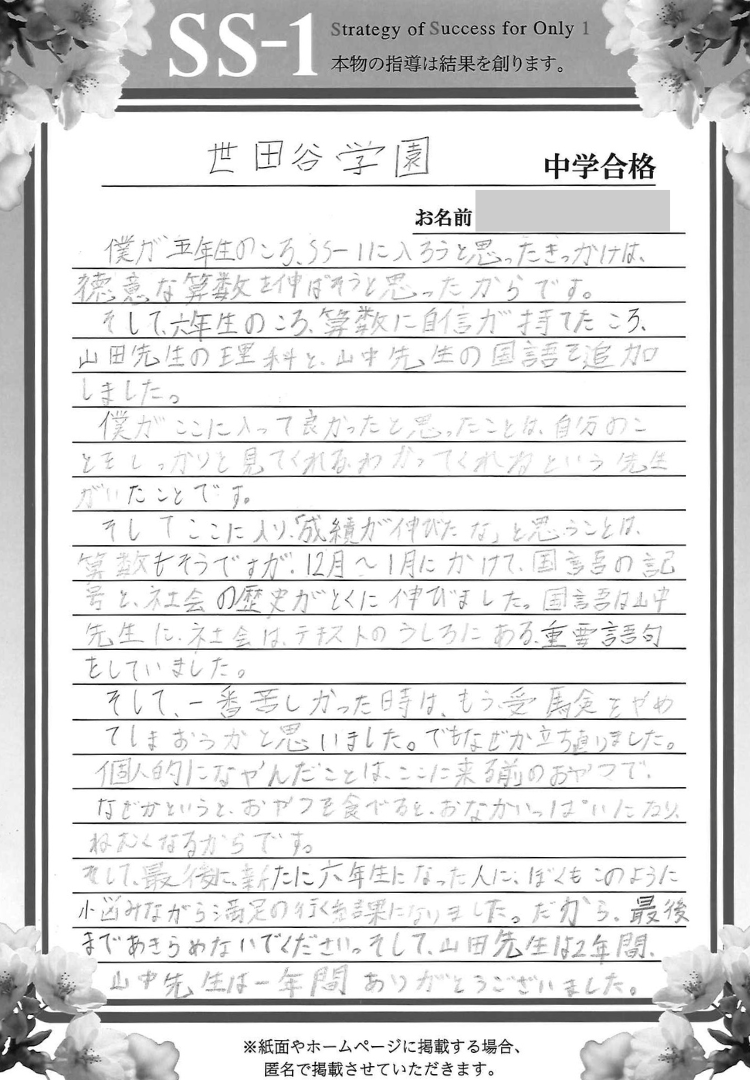 SS-1
Strategy of Success for Only 1
本物の指導は結果を創ります。
世田谷学園 中学合格
お名前
僕が五年生のころ、SS-1に入ろうと思ったきっかけは、
徳意な算数を伸ばそうと思ったからです。
そして、六年生のころ、算数に自信が持てたころ、
山田先生の理科と、山中先生の国語を追加
しました。
僕がここに入って良かったと思ったことは、自分のこ
とをしっかりと見てくれる、わかってくれるという先生
がいたことです。
そしてここに入り、「成績が伸びたな」と思うことは、
算数もそうですが、12月〜1月にかけて、国語の記
号と、社会の歴史がとくに伸びました。国語は山中
先生に、社会は、テキストのうしろにある、重要語句
をしていました。
そして、一番苦しかった時は、もう、受験をやめ
てしまおうかと思いました。でもなぜか立ち直りました。
個人的になやんだことは、ここに来る前のおやつで、
なぜかというと、おやつを食べると、おなかいっぱいになり、
ねむくなるからです。
そして、最後に、新たに六年生になった人に、ぼくもこのように
小凶みながら満足の行く結果になりました。だから、最後
まであきらめないでください。そして、山田先生は2年間、
山中先生は一年間ありがとうございました。
※紙面やホームページに掲載する場合、
匿名で掲載させていただきます。